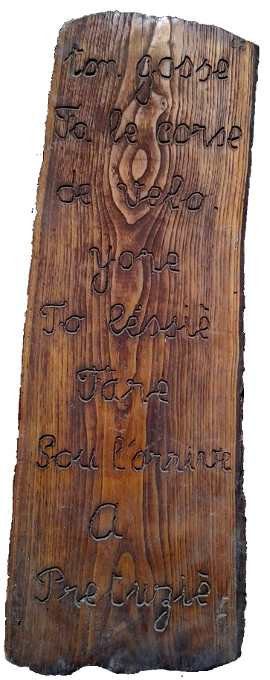 ton gosse
Fa le corse
de velo.
yore
To léssiè
Fare
Pou l'arrive
A
Pretuziè